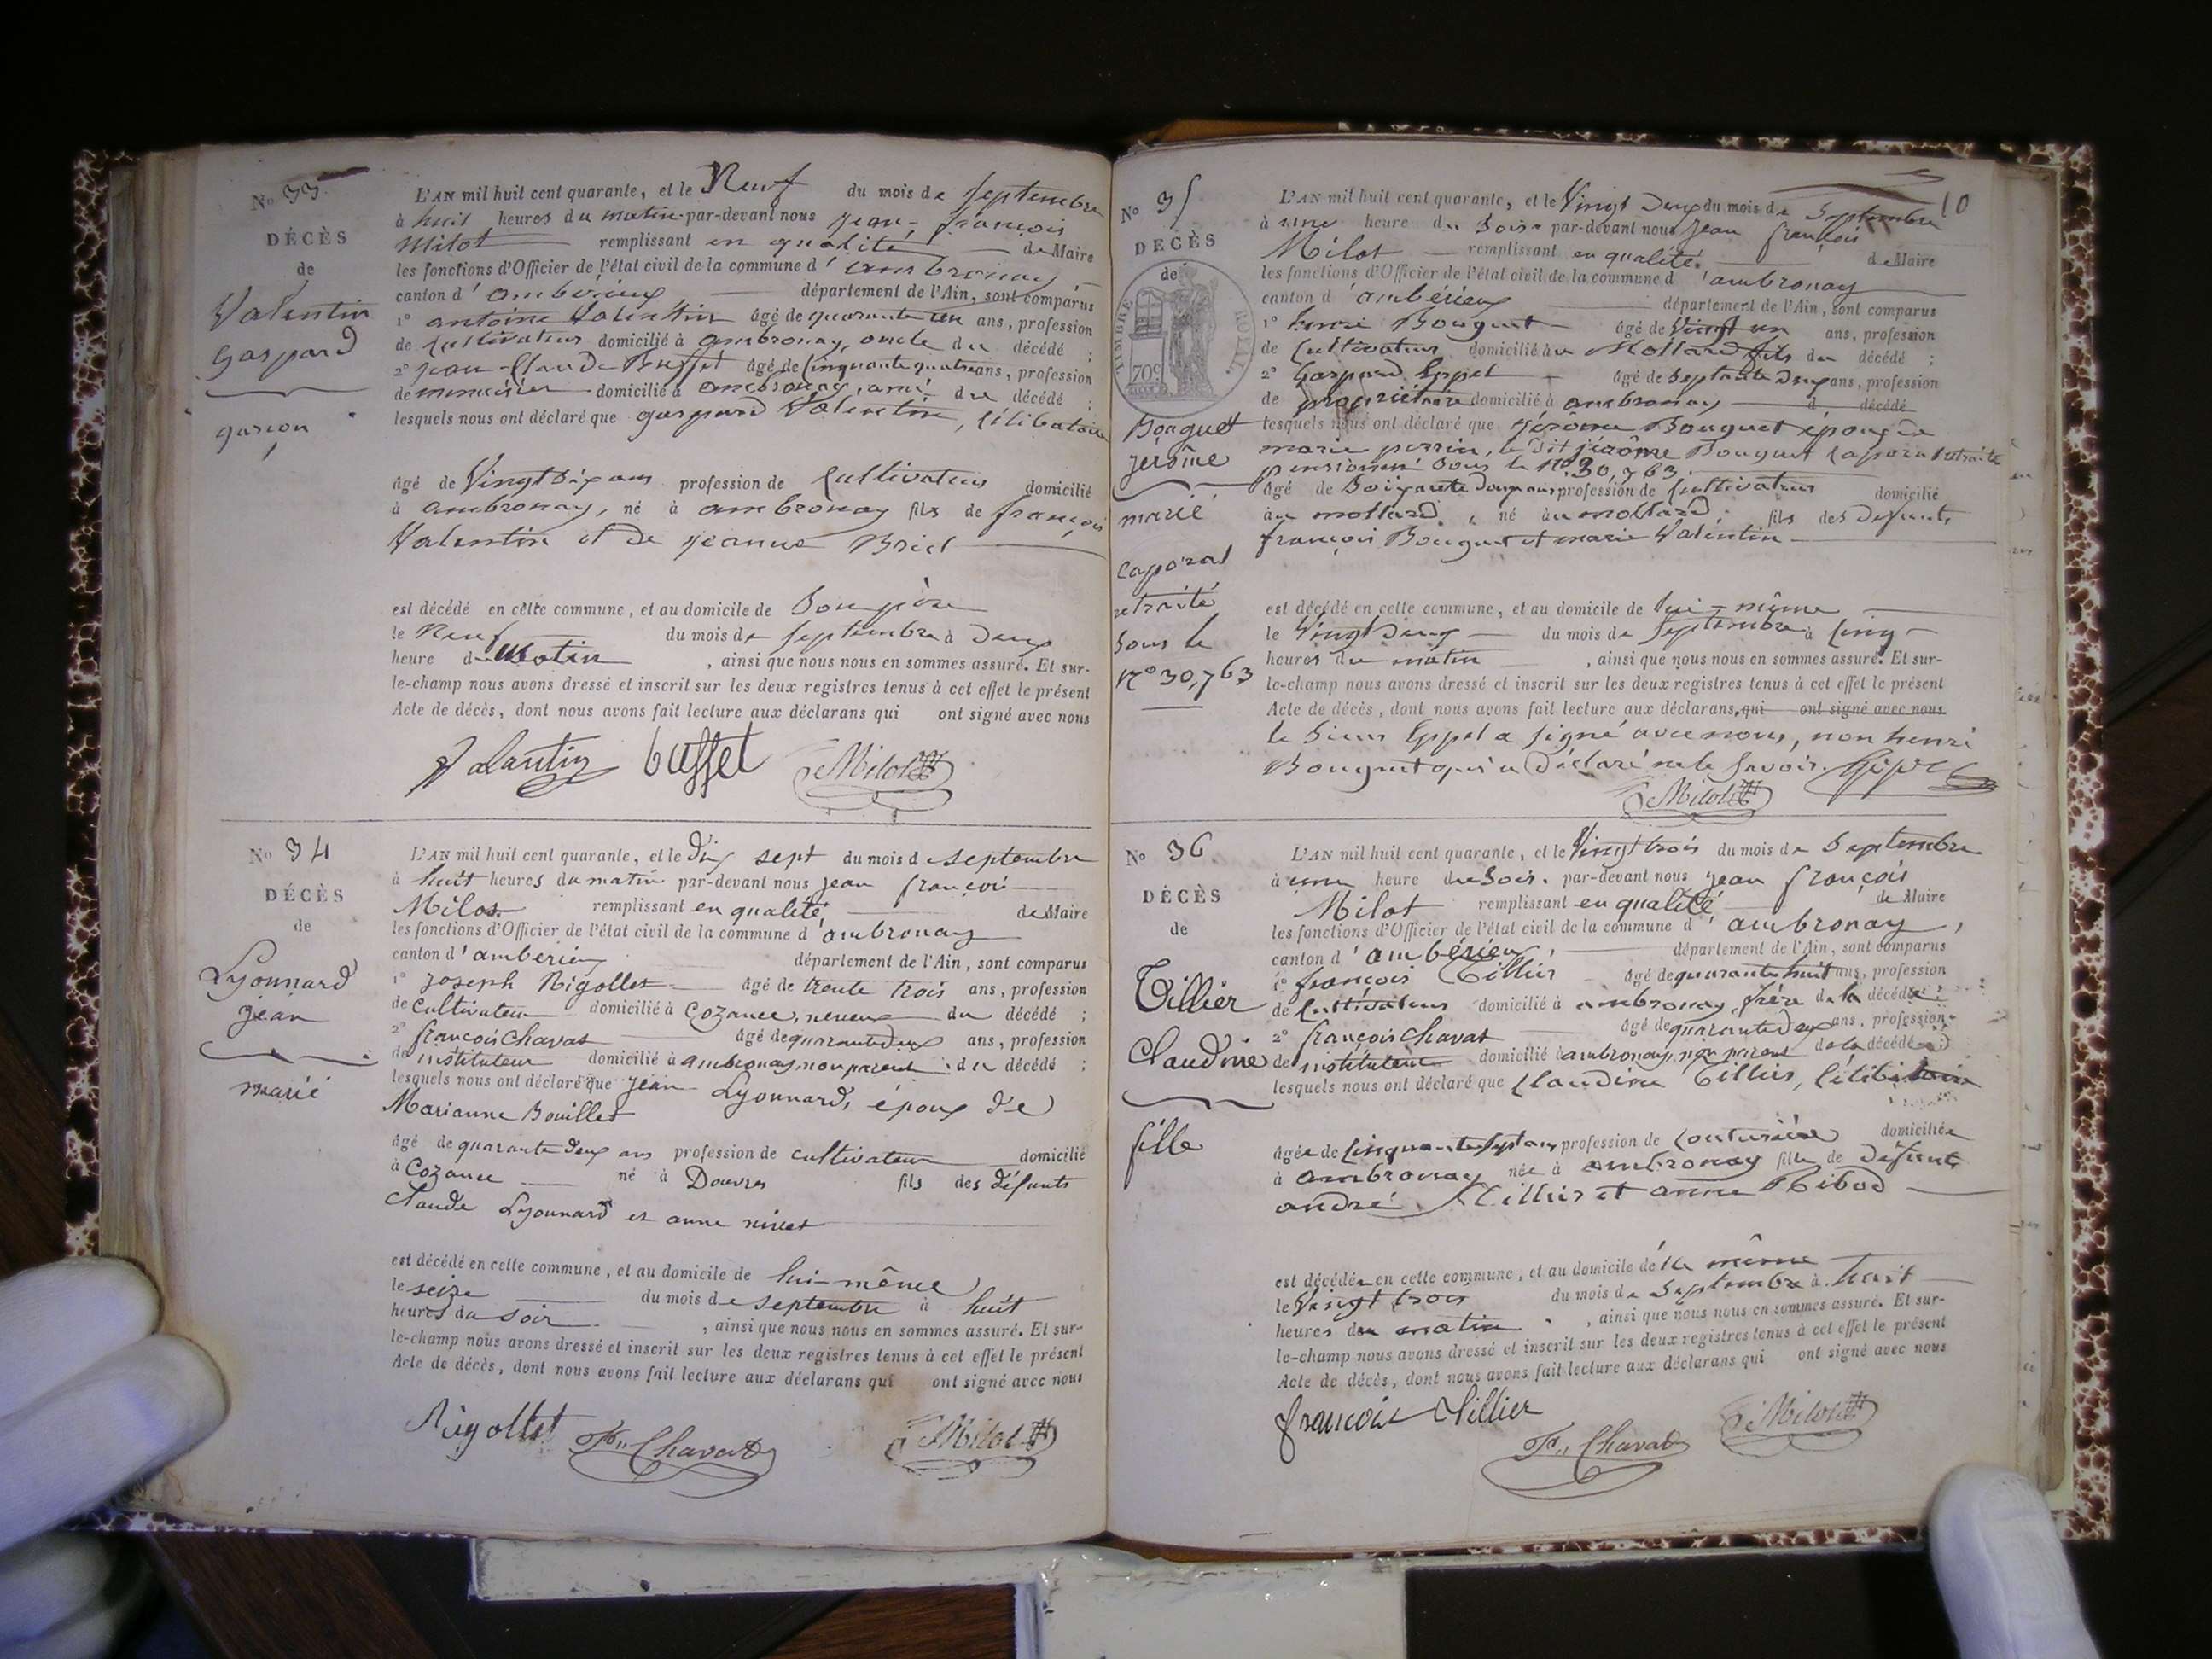 No 33
DÉCÈS
de
Valentin
Gaspard
garçon
L'AN mil huit cent quarante, et le Neuf du mois de septembre
à huit heures du matin par-devant nous jean françois
Milot remplissant en qualité de Maire
les fonctions d'Officier de l'état civil de la commune d'ambronay
canton d'ambérieux département de l'Ain, sont comparus
1° antoine Valentin âgé de quarante un ans, profession
de Cultivateur domicilié à ambronay, oncle du décédé ;
2° jean Claude Buffet âgé de Cinquante quatre ans, profession
de menuisier domicilié à ambronay, ami du décédé ;
lesquels nous ont déclaré que gaspard Valentin, Célibataire
âgé de Vingt Six ans profession de Cultivateur domicilié
à ambronay, né à ambronay fils de françois
Valentin et de jeanne
est décédé en cette commune, et au domicile de Son père
le Neuf du mois de septembre à Deux
heure du Matin, ainsi que nous nous en sommes assuré. Et sur-
le-champ nous avons dressé et inscrit sur les deux registres tenus à cet effet le présent
Acte de décès, dont nous avons fait lecture aux déclarans qui ont signé avec nous
Valantin buffet Milot
No 34
DÉCÈS
de
Lyonnard
jean
marié
L'AN mil huit cent quarante, et le Dix sept du mois de septembre
à huit heures du matin par-devant nous jean françois
Milot remplissant en qualité de Maire
les fonctions d'Officier de l'état civil de la commune d'ambronay
canton d'ambérieux département de l'Ain, sont comparus
1° joseph Rigollet âgé de trente trois ans, profession
de cultivateur domicilié à Cozance, neveux du décédé ;
2° françois Chavat âgé de quarante deux ans, profession
de instituteur domicilié à ambronay, non parent du décédé ;
lesquels nous ont déclaré que jean Lyonnard, époux de
Marianne Bouillet
âgé de quarante deux ans profession de cultivateur domicilié
à Cozance né à Douvres fils des défunts
Claude Lyonnard et anne
est décédé en cette commune, et au domicile de lui-même
le seize du mois de septembre à huit
heures du soir, ainsi que nous nous en sommes assuré. Et sur-
le-champ nous avons dressé et inscrit sur les deux registres tenus à cet effet le présent
Acte de décès, dont nous avons fait lecture aux déclarans qui ont signé avec nous
Rigollet Fs Chavat Milot
10
No 35
DÉCÈS
de
TIMBRE ROYAL
70c
Bouguet
jerôme
marié
caporal
retraité
Sous le
N° 30,763
L'AN mil huit cent quarante, et le Vingt Deux du mois de Septembre
à une heure du Soir par-devant nous jean françois
Milot remplissant en qualité de Maire
les fonctions d'Officier de l'état civil de la commune d'ambronay
canton d'ambérieux département de l'Ain, sont comparus
1° henri Bouguet âgé de Vingt un ans, profession
de Cultivateur domicilié au Mollard fils du décédé ;
2° Gaspard Eppel âgé de Septante Deux ans, profession
de propriétaire domicilié à ambronay d décédé
lesquels nous ont déclaré que jérôme Bouguet époux de
marie perrin, le dit jérôme Bouguet Caporal retraité
pensionné Sous le N° 30,763
âgé de Soixante Deux ans profession de Cultivateur domicilié
au mollard, né au mollard fils des Defunts
françois Bouguet et marie Valentin
est décédé en cette commune, et au domicile de lui-même
le Vingt Deux du mois de Septembre à Cinq
heures du matin, ainsi que nous nous en sommes assuré. Et sur-
le-champ nous avons dressé et inscrit sur les deux registres tenus à cet effet le présent
Acte de décès, dont nous avons fait lecture aux déclarans, qui ont signé avec nous
le Sieur Eppel a Signé avec nous, non henri
Bouguet qui a Déclaré ne le Savoir.
Milot
No 36
DÉCÈS
de
Tillier
Claudine
fille
L'AN mil huit cent quarante, et le Vingt trois du mois de Septembre
à une heure du Soir. par-devant nous jean françois
Milot remplissant en qualité de Maire
les fonctions d'Officier de l'état civil de la commune d'ambronay,
canton d'ambérieux, département de l'Ain, sont comparus
1° françois Tillier âgé de quarante huit ans, profession
de Cultivateur domicilié à ambronay, frère de la décédée ;
2° françois Chavat âgé de quarante Deux ans, profession
de instituteur domicilié à ambronay, non parent de la décédée
lesquels nous ont déclaré que Claudine Tillier, Célibataire
âgée de Cinquante Sept ans profession de Couturière domiciliée
à ambronay née à ambronay fille de Defunts
andré Tillier et anne Ribod
est décédée en cette commune, et au domicile d'elle même
le Vingt trois du mois de Septembre à huit
heures du matin, ainsi que nous nous en sommes assuré. Et sur-
le-champ nous avons dressé et inscrit sur les deux registres tenus à cet effet le présent
Acte de décès, dont nous avons fait lecture aux déclarans qui ont signé avec nous
françois Tillier Fs Chavat Milot